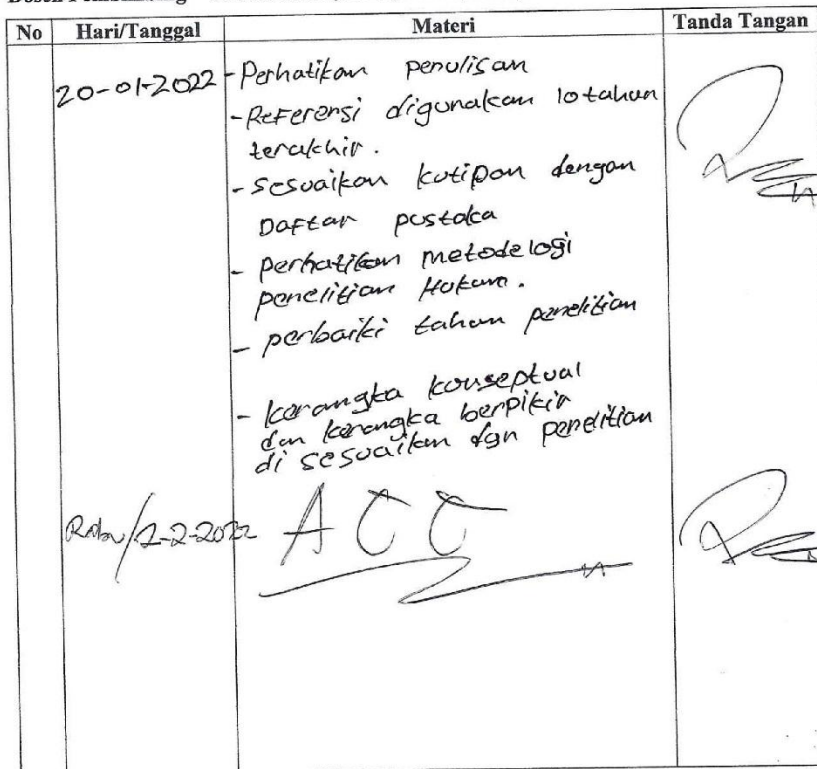 No Hari/Tanggal Materi Tanda Tangan
20-01-2022 - Perhatikan penulisan
- Referensi digunakan 10 tahun
terakhir.
- sesuaikan kutipan dengan
Daftar pustaka
- perhatikan metodelogi
penelitian Hukum.
- perbaiki tahun penelitian
- kerangka konseptual
dan kerangka berpikir
di sesuaikan dgn penelitian
Rabu/2-2-2022 ACC